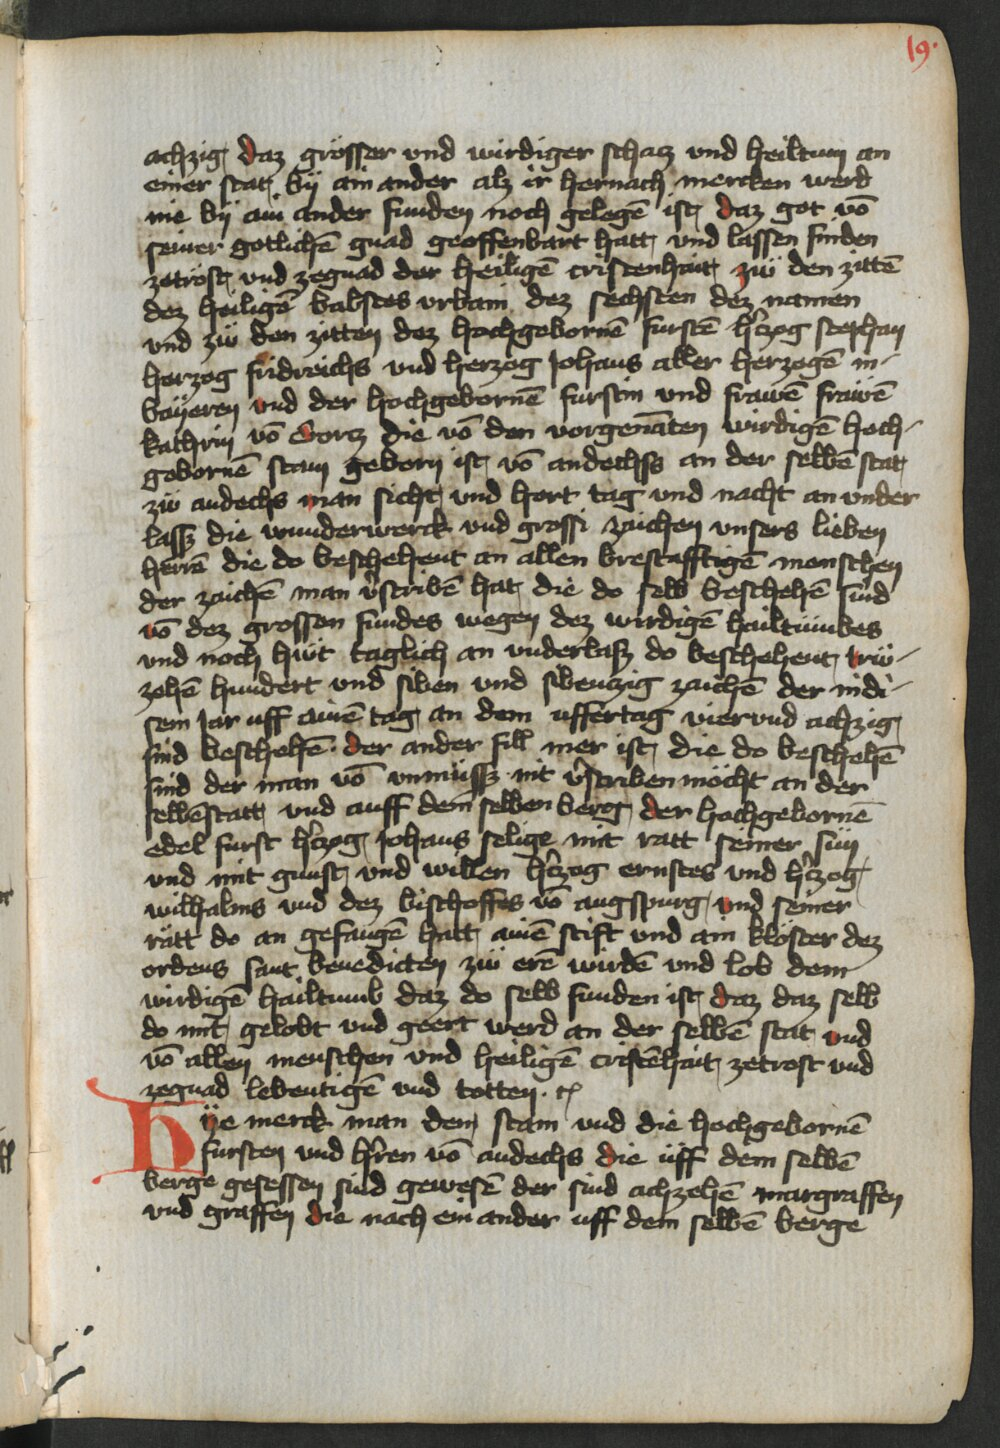 19.
achzig daz grösser vnd wirdiger schatz vnd heiltum an
einer stat bÿ ain ander alz ir hernach mercken werd
nie bÿ ain ander funden noch gelegē ist daz got vō
seiner gotlichē gnad geoffenbart hatt vnd lassen finden
zetrost vnd zegnad der heiligē cristenhait zü den zittē
dez heiligē babstes vrbani dez sechsten dez namen
vnd zü den zitten dez hochgebornē furstē h'czog stephan
herzog fridreichs vnd herzog Johans aller herzogē in-
baÿeren vnd der hochgebornē furstin vnd frawē frawē
kathrin vō Gorcz die vō den vorgenāten wirdigē hoch-
gebornē stam geborn ist vō andechss an der selbē stat
zü andechs man sicht vnd hort tag vnd nacht an vnder
lassz die wunderwerck vnd grossi zaichen vnsers lieben
herrē die do beschehent an allen brestafftigē menschen
der zaichē man v'scribē hat die do selb beschehē sind
vō dez grossen fundes wegen dez wirdigē hailtümbes
vnd noch hüt taglich an vnderlasz do beschehent trü-
zehē hundert vnd siben vnd sibenzig zaichē der indi-
sem Jar uff ainē tag an dem uffertag viervnd achzig
sind beschehē der ander fill mer ist die do beschehē
sind der man vō vnmüssz nit v'scriben möcht an der
selbēstatt vnd auff dem selben berg der hochgebornē
edel furst h'czog Johans selige mit ratt seiner sun
vnd mit gunst vnd willen h'czog ernstes vnd h'czog
wilhalms vnd dez bischoffes vō augspurg vnd seiner
rätt do an gefangē hatt ainē stift vnd ain klöster dez
ordens sant benedicten zü erē wirdē vnd lob dem
wirdigē hailtumb daz do selb funden ist daz daz selb
do mit gelobt vnd geert werd an der selbē stat vnd
vō allen menschen vnd heiligē cristēhait zetrost vnd
zegnad lebentigē vnd totten.
Hÿe merck man dem stam vnd die hochgebornē
fursten vnd h'ren vō andechs die üff dem selbē
berge gesessen sind gewesē der sind achzehē margraffen
vnd graffen die nach ein ander uff dem selbē berge